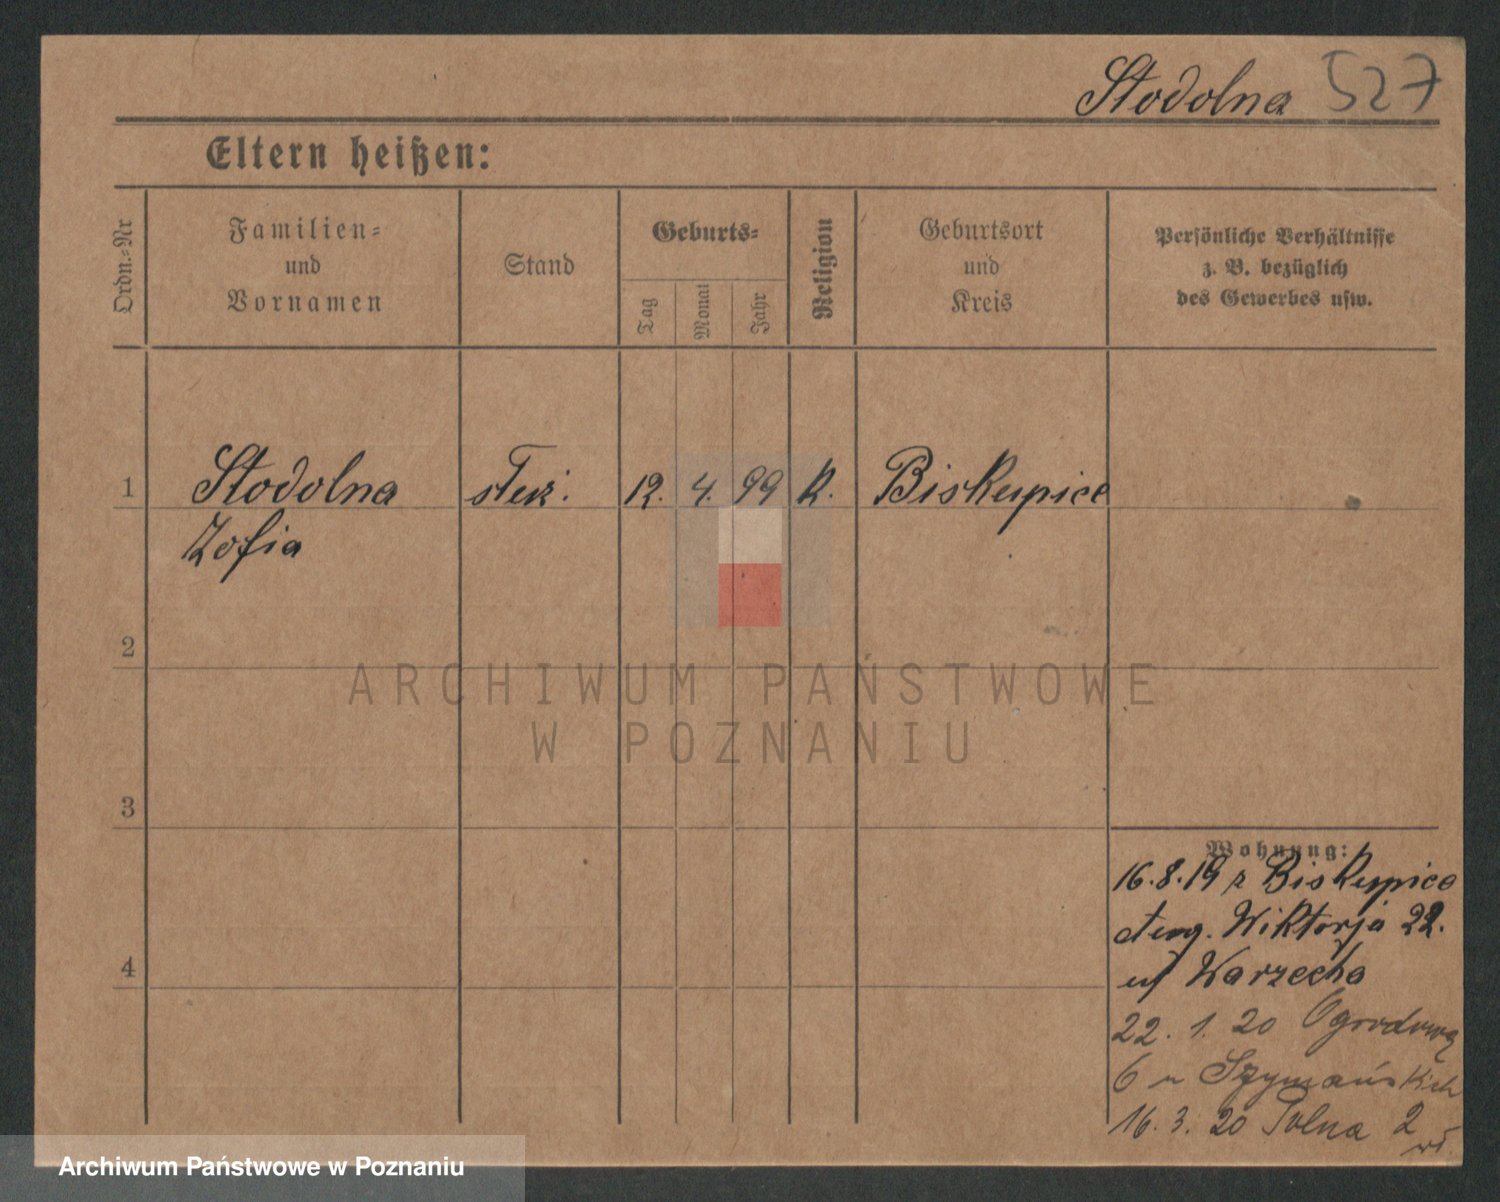 Stodolna 527
Eltern heißen:
Ordn.-Nr
Familien-
und
Vornamen
Stand
Geburts-
Tag
Monat
Jahr
Religion
Geburtsort
und
Kreis
Persönliche Verhältnisse
z. B. bezüglich
des Gewerbes usw.
1 Stodolna służ. 12. 4. 99 K. Biskupice
Zofia
2
ARCHIWUM PAŃSTWOWE
W POZNANIU
3
4
Wohnung:
16.8.19 z Biskupice
Wiktorja 22.
Warzecha
22. 1. 20 Ogrodową
6 u Szymańskich
16. 3. 20 Polna 2
Archiwum Państwowe w Poznaniu